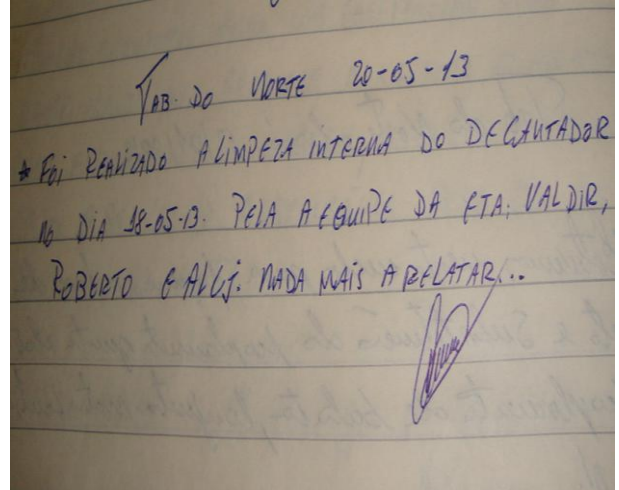 TAB. DO NORTE 20-05-13
* FOI REALIZADO A LIMPEZA INTERNA DO DECANTADOR
NO DIA 18-05-13. PELA A EQUIPE DA ETA; VALDIR,
ROBERTO E NADA MAIS A RELATAR...